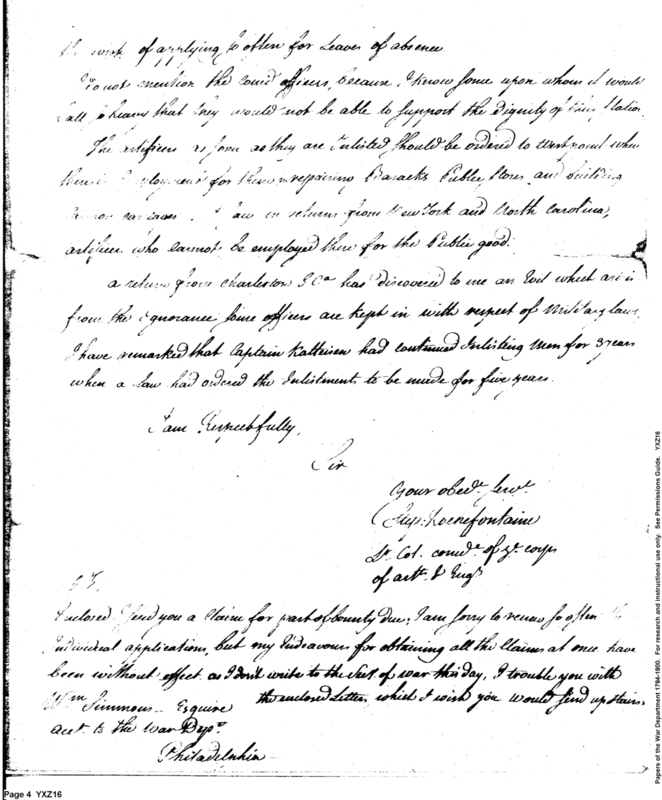 the risk of applying so often for Leaves of absence
I do not mention the Comd officers, because, I know some upon whom it would
fall so heavy that they would not be able to support the dignity of their Station
The artificers as soon as they are Inlisted, should be ordered to West point where
there is Employment for them in repairing Baracks Public Stores and building
I saw in returns from New York and North Carolina,
artificers who cannot be employed there for the Public good.
a return from Charleston S Ca has discovered to me an Evil which arises
from the ignorance some officers are kept in with respect of Military laws
I have remarked that Captain Kalteisen had continued Inlisting Men for 3 years
when a law had ordered the Inlistments to be made for five years.
I am Respectfully,
Sir
Your obedt Servt
Stepn Rochefontaine
Lt Col. comdt of ye corps
of arts & Engs
Enclosed I send you a Claim for part of bounty due; I am sorry to renew so often
individual applications, but my Endeavours for obtaining all the Claims at once have
been without effect. as I don't write to the Sect of war this day, I trouble you with
the enclosed Letter, which I wish you would send up stairs.
Wm Simmons - Esquire
acct to the War Dept
Philadelphia
Page 4 YXZ16
Papers of the War Department 1784-1800. For research and instructional use only. See Permissions Guide. YXZ16